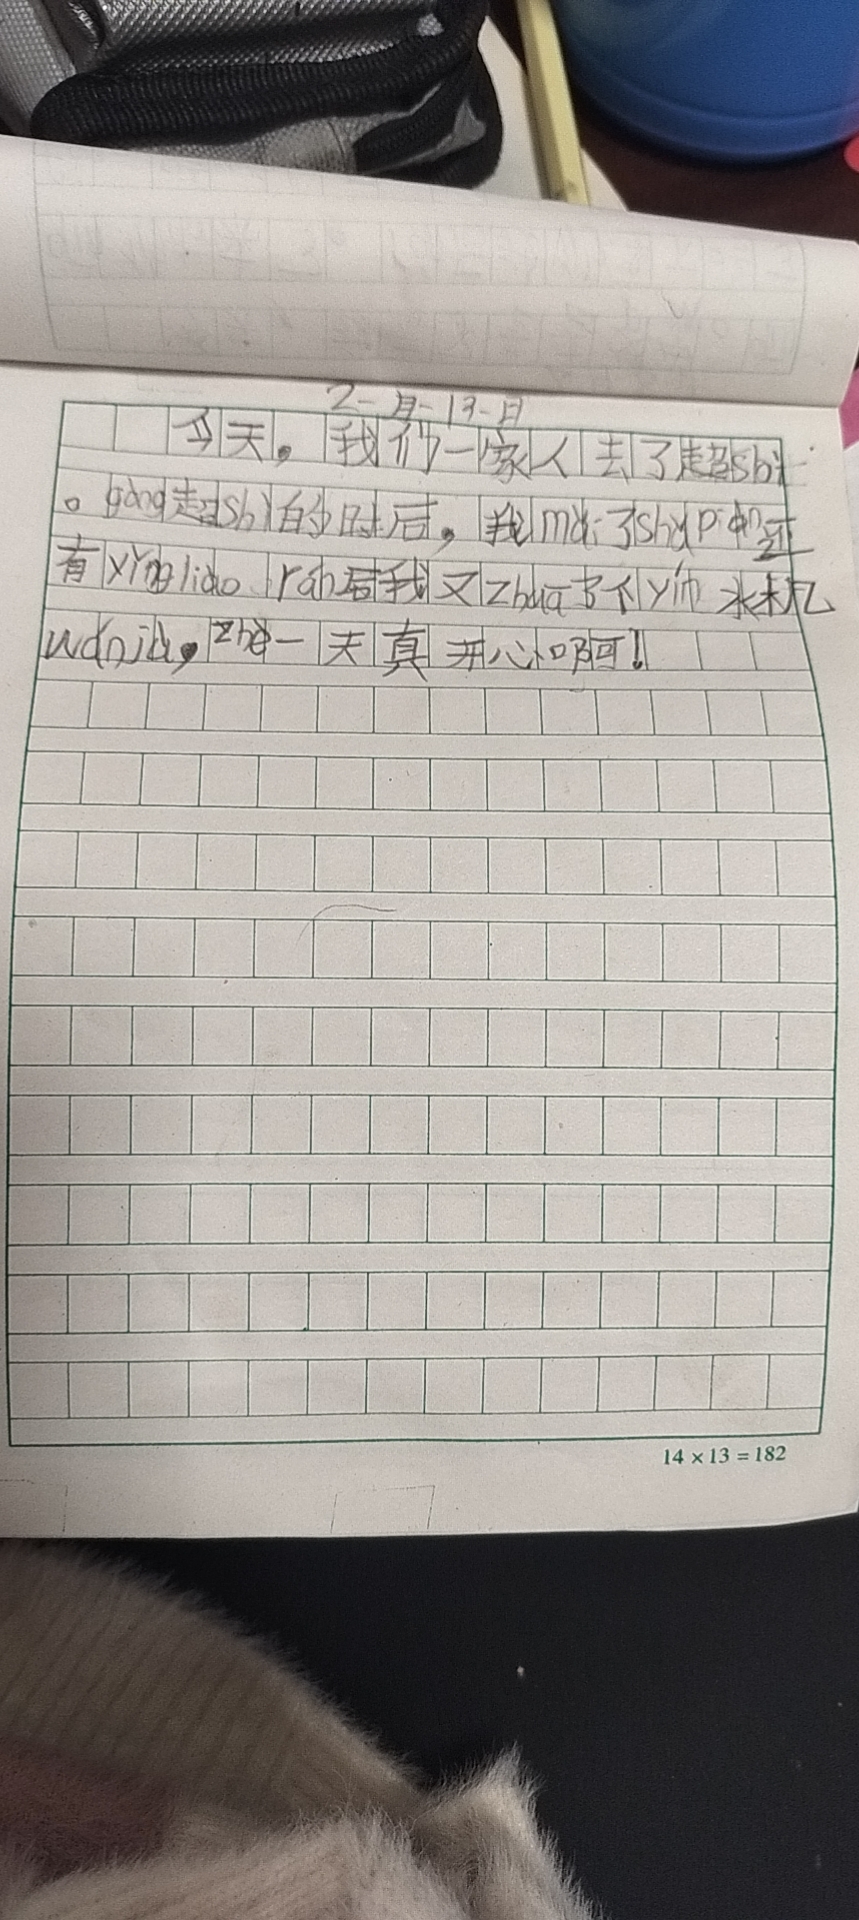 2-月-13-日
今天，我们一家人去了超shì
。gàng超shì的时后，我mǎi了shǔpiàn还
有yǐngliào rán后我又zhuā了个yín 水机
wánjù，zhè一天真开心啊！
14 × 13 = 182